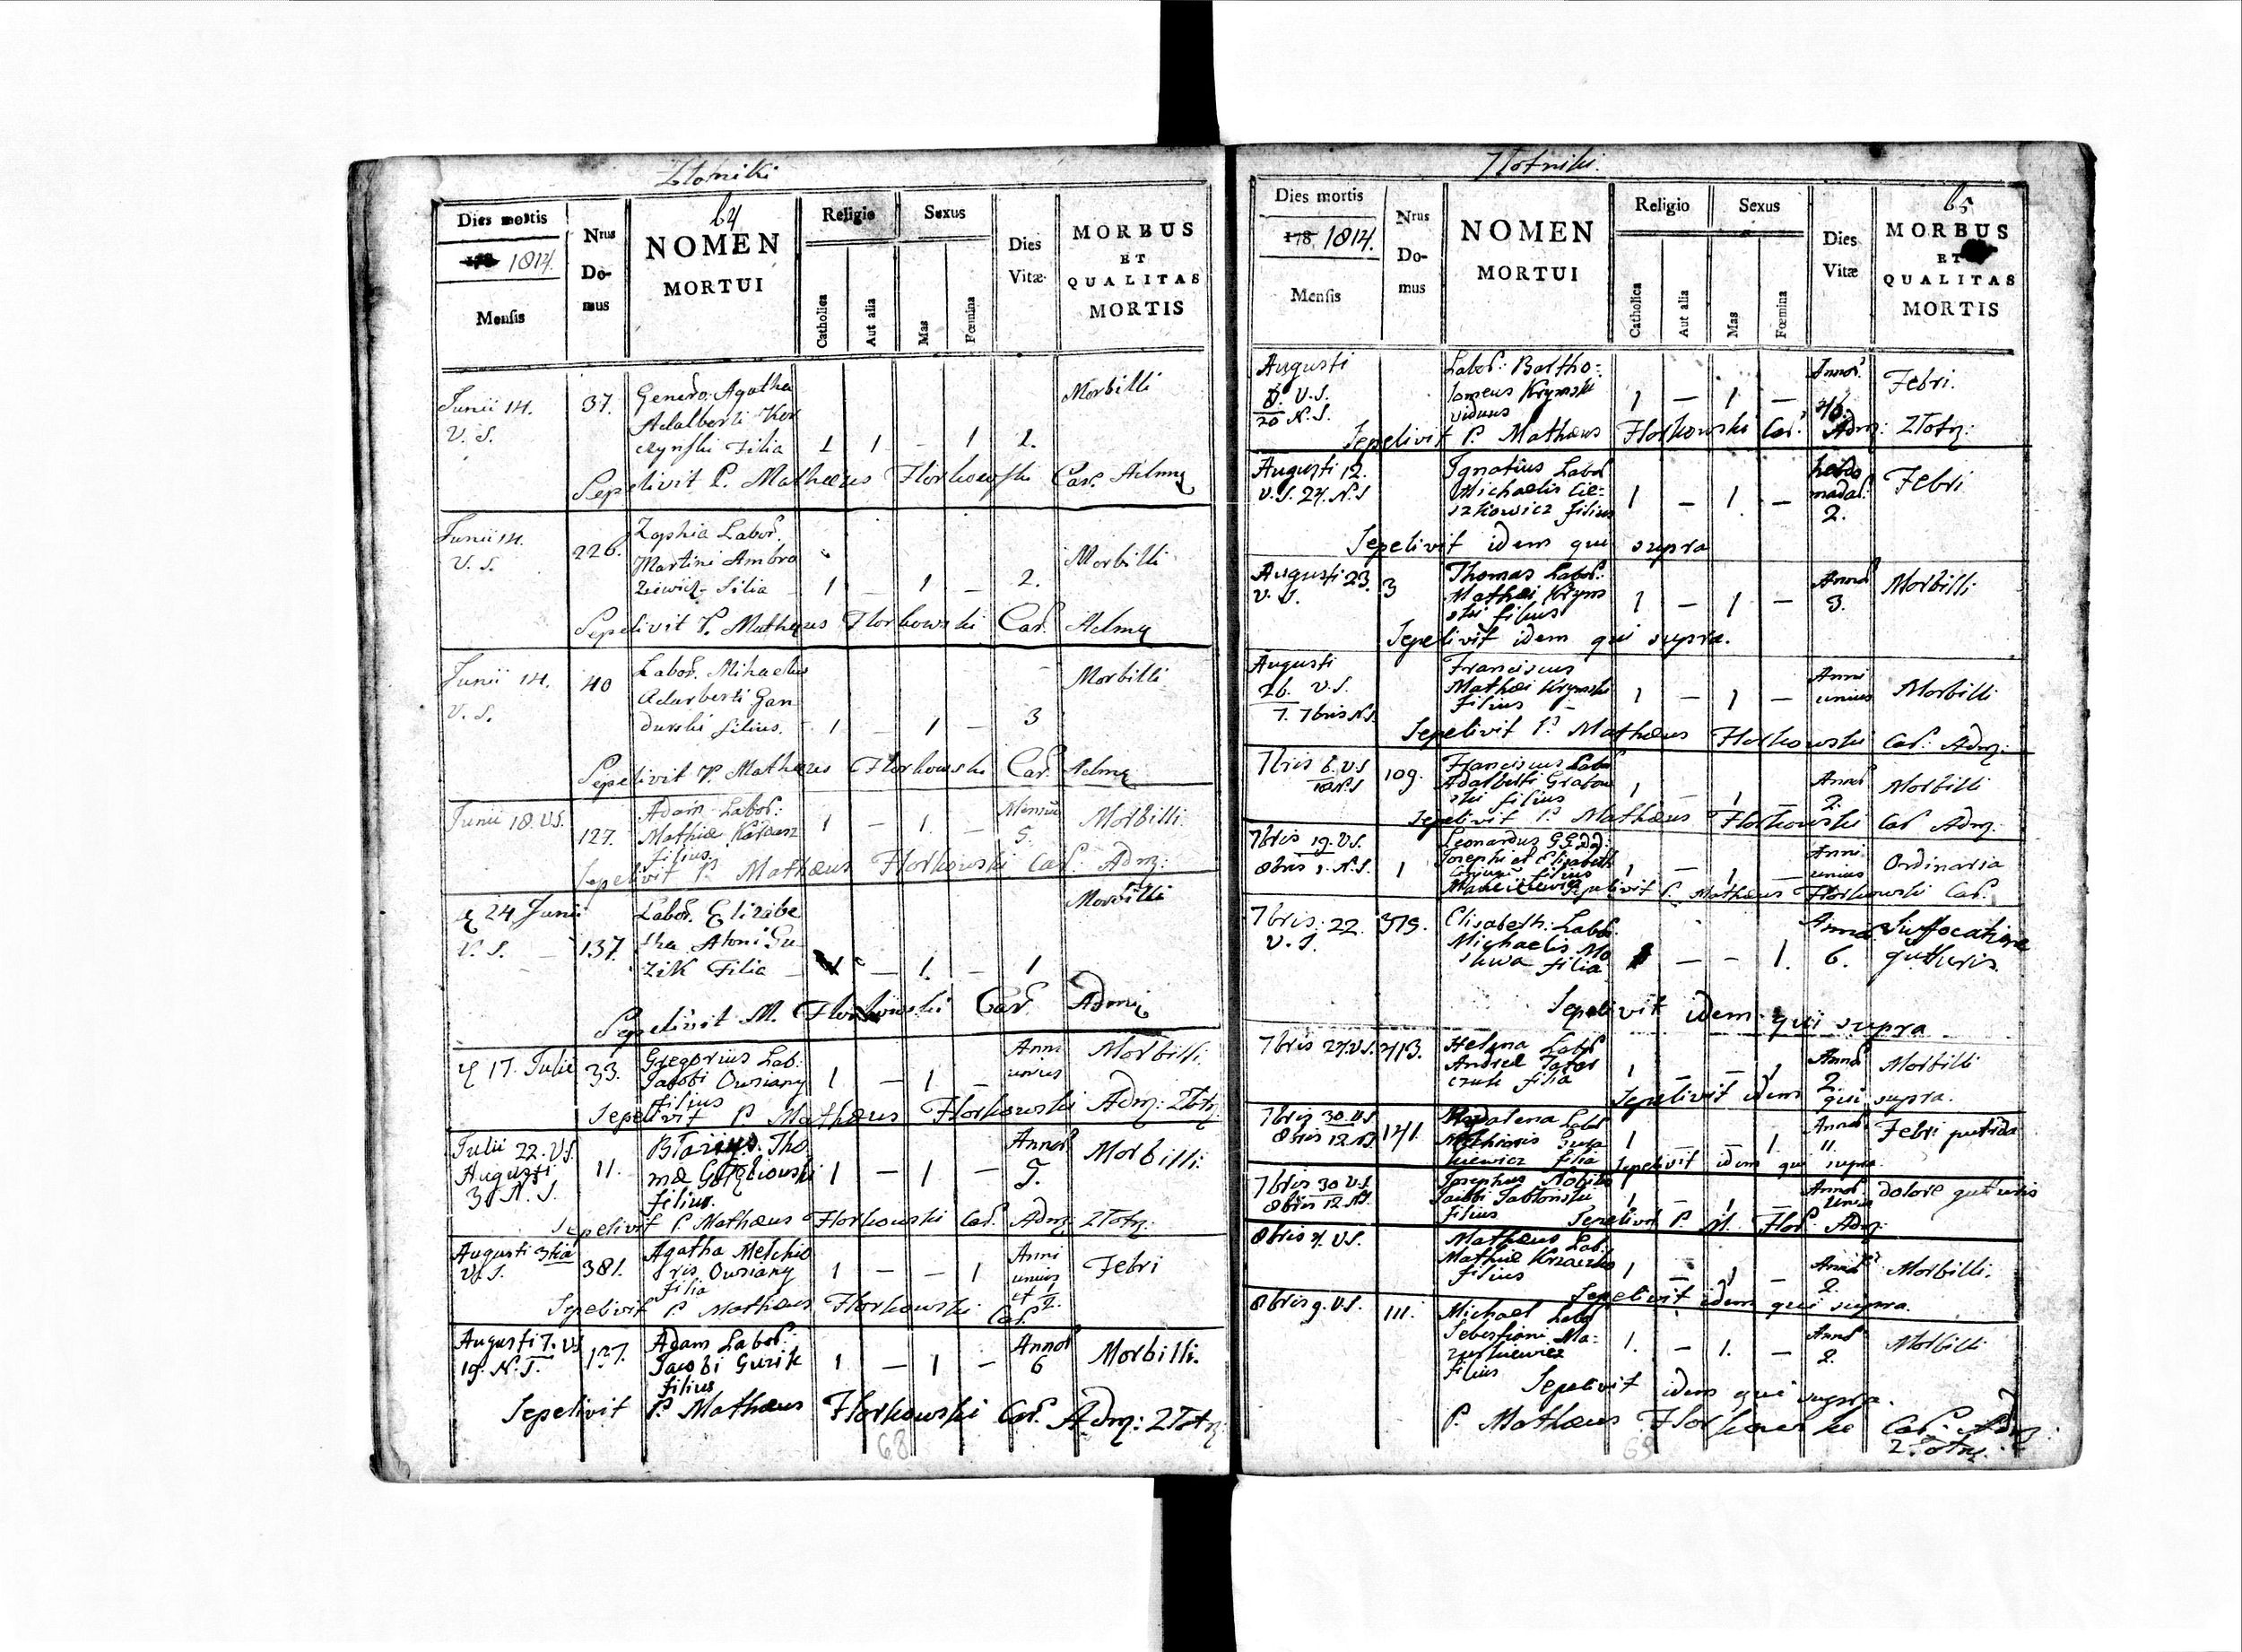 Zlotniki
64
Dies mortis
1814.
Mensis
Nrus
Do-
mus
NOMEN
MORTUI
Religio
Catholica
Aut alia
Sexus
Mas
Fœmina
Dies
Vitæ
MORBUS
ET
QUALITAS
MORTIS
Junii 14.
V. S.
37.
Genero: Agatha
Adalberti
Filia
1 1 - 1 2.
Morbilli
Sepelivit P. Mathæus Florkowski Cap. Admr
Junii 14.
V. S.
226.
Zophia Labor.
Martini Ambro
ziewicz filia
1 - 1 - 2.
Morbilli
Sepelivit P. Mathæus Florkowski Cap. Admr
Junii 14.
V. S.
40
Labor. Mihaelus
Adarberti Gan
durski filius.
1 - 1 - 3
Morbilli
Sepelivit P. Mathæus Florkowski Cap. Admr
Junii 18. V.S.
127.
Adam Labor:
Mathiæ
filius.
1 - 1. - 5.
Morbilli
Sepelivit P. Mathæus Florkowski Cap: Adm:
24 Junii
V. S.
137.
Labor. Elizabe
tha Atoni Gu
zik Filia
- 1. - 1
Morbilli
Sepelivit M. Florkowski Cap. Admr
17. Julii
33.
Gregorius Lab:
Jacobi Owsiany
filius
1 - 1 -
Anni
unius
Morbilli.
Sepelivit P. Mathæus Florkowski Adm: Zlotn:
Julii 22. V.S.
Augusti
3 N. S.
11.
Tho
mæ
filius.
1 - 1 -
Annor
5.
Morbilli.
Sepelivit P. Mathæus Florkowski Cap. Adm: Zlotn:
Augusti 3tia
V. S.
381.
Agatha Melchio
ris Owsiany
filia
1 - - 1
Anni
unius
et 1/2.
Febri
Sepelivit P. Mathæus Florkowski Cap.
Augusti 7. VS
19. N. S.
137.
Adam Labor:
Jacobi Guzik
filius
1 - 1 -
Annor
6
Morbilli.
Sepelivit P. Mathæus Florkowski Cap. Adm: Zlotn:
68
Zlotniki.
65
Dies mortis
178 1814.
Mensis
Nrus
Do-
mus
NOMEN
MORTUI
Religio
Catholica
Aut alia
Sexus
Mas
Fœmina
Dies
Vitæ
MORBUS
ET
QUALITAS
MORTIS
Augusti
8. V.S.
20 N.S.
Labor: Bartho-
lomeus Krymski
viduus
1 - 1 -
Annor.
46.
Febri.
Sepelivit P. Mathæus Florkowski Cap: Adm: Zlotn:
Augusti 12.
V.S. 24. N.S
Ignatius Labor
Michaelis Cie-
szkowicz filius
1 - 1 -
hebdo
madar.
2.
Febri
Sepelivit idem qui supra
Augusti 23.
V. S.
3
Thomas Labor:
Mathæi Kryms
ski filius
1 - 1 -
Annor
3.
Morbilli
Sepelivit idem qui supra.
Augusti
26. V.S.
7. 7bris N.S.
Franciscus
Mathæi Krymski
filius
1 - 1 -
Anni
unius
Morbilli
Sepelivit P. Mathæus Florkowski Cap: Adm:
7bris 6. V.S
18 N.S
109.
Franciscus Labor
Adalberti Grabow
ski filius
1 - 1 -
Annor
2.
Morbilli
Sepelivit P. Mathæus Florkowski Cap Adm:
7bris 19. V.S.
8bris 1. N.S.
1
Leonardus GGDD:
Josephi et Elisabeth
filius
1 - 1 -
Anni
unius
Ordinaria
Sepelivit P. Mathæus Florkowski Cap.
7bris. 22.
V. S.
Elisabeth. Labor.
Michaelis Mo
skwa filia
- - 1.
Annor
6.
Suffocatione
gutturis.
Sepelivit idem qui supra
7bris 27. V.S.
213.
Helena Labor
Andreæ Tatar
czuk filia
1 - - 1
Annor
2.
Morbilli
Sepelivit idem qui supra.
7bris 30. V.S
8bris 12. N.S
141.
Magdalena Labor
filia
1 - - 1.
Annor
11.
Febri putrida
Sepelivit idem qui supra.
7bris 30 V.S.
8bris 12. N.S.
Josephus Nobilis
Jacobi Jablonski
filius
1 - 1 -
dolore gutturis
Sepelivit P. M. Flor. Adm:
8bris 4. V.S.
Mathæus Lab.
Mathiæ Krzaczko
filius
1 - 1 -
Annor
2.
Morbilli.
Sepelivit idem qui supra.
8bris 9. V.S.
111.
Michael Labor
Sebastiani Ma-
zurkiewicz
filius
1. - 1. -
Annor
2.
Morbilli
Sepelivit idem qui supra.
P. Mathæus Florkowski Cap: Adm:
Zlotn:
69